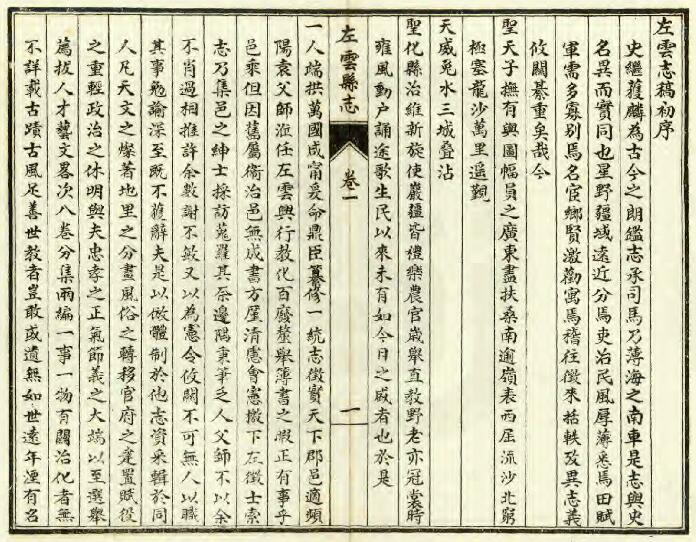 左雲志稿初序
史繼獲麟為古今之朗鑑志承司馬乃薄海之南車是志與史
名異而實同也星野疆域遠近分焉吏治民風厚薄悉焉田賦
軍需多寡別焉名宦鄉賢激勸寓焉稽往徵來括軼攷異志義
攸關綦重矣哉今
聖天子撫有輿圖幅員之廣東盡扶桑南逾嶺表西屈流沙北窮
極塞龍沙萬里遥覲
天威兎水三城叠沾
聖化縣治維新旋使巖疆皆禮樂農官歲舉直教野老亦冠裳時
雍風動户誦途歌生民以來未有如今日之盛者也於是
左雲縣志
卷一
一
一人端拱萬國咸甯爰命鼎臣纂修一統志徵實天下郡邑適頻
陽袁父師涖任左雲興行教化百廢釐舉簿書之暇正有事乎
邑乘但因舊屬衞治邑無成書方厪清慮會憲檄下左徵士索
志乃集邑之紳士採訪蒐羅其奈邊隅秉筆乏人父師不以余
不肖過相推許余數謝不敏又以為憲令攸關不可無人以職
其事勉諭深至既不獲辭夫是以倣體制於他志資采輯於同
人凡天文之燦著地里之分畫風俗之轉移官府之建置賦役
之重輕政治之休明與夫忠孝之正氣節義之大端以至選舉
薦拔人才藝文畧次八卷分集兩編一事一物有關治化者無
不詳載古蹟古風足善世教者豈敢或遺無如世遠年湮有名